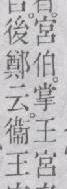 宮伯。掌王宮
後鄭云。衞王